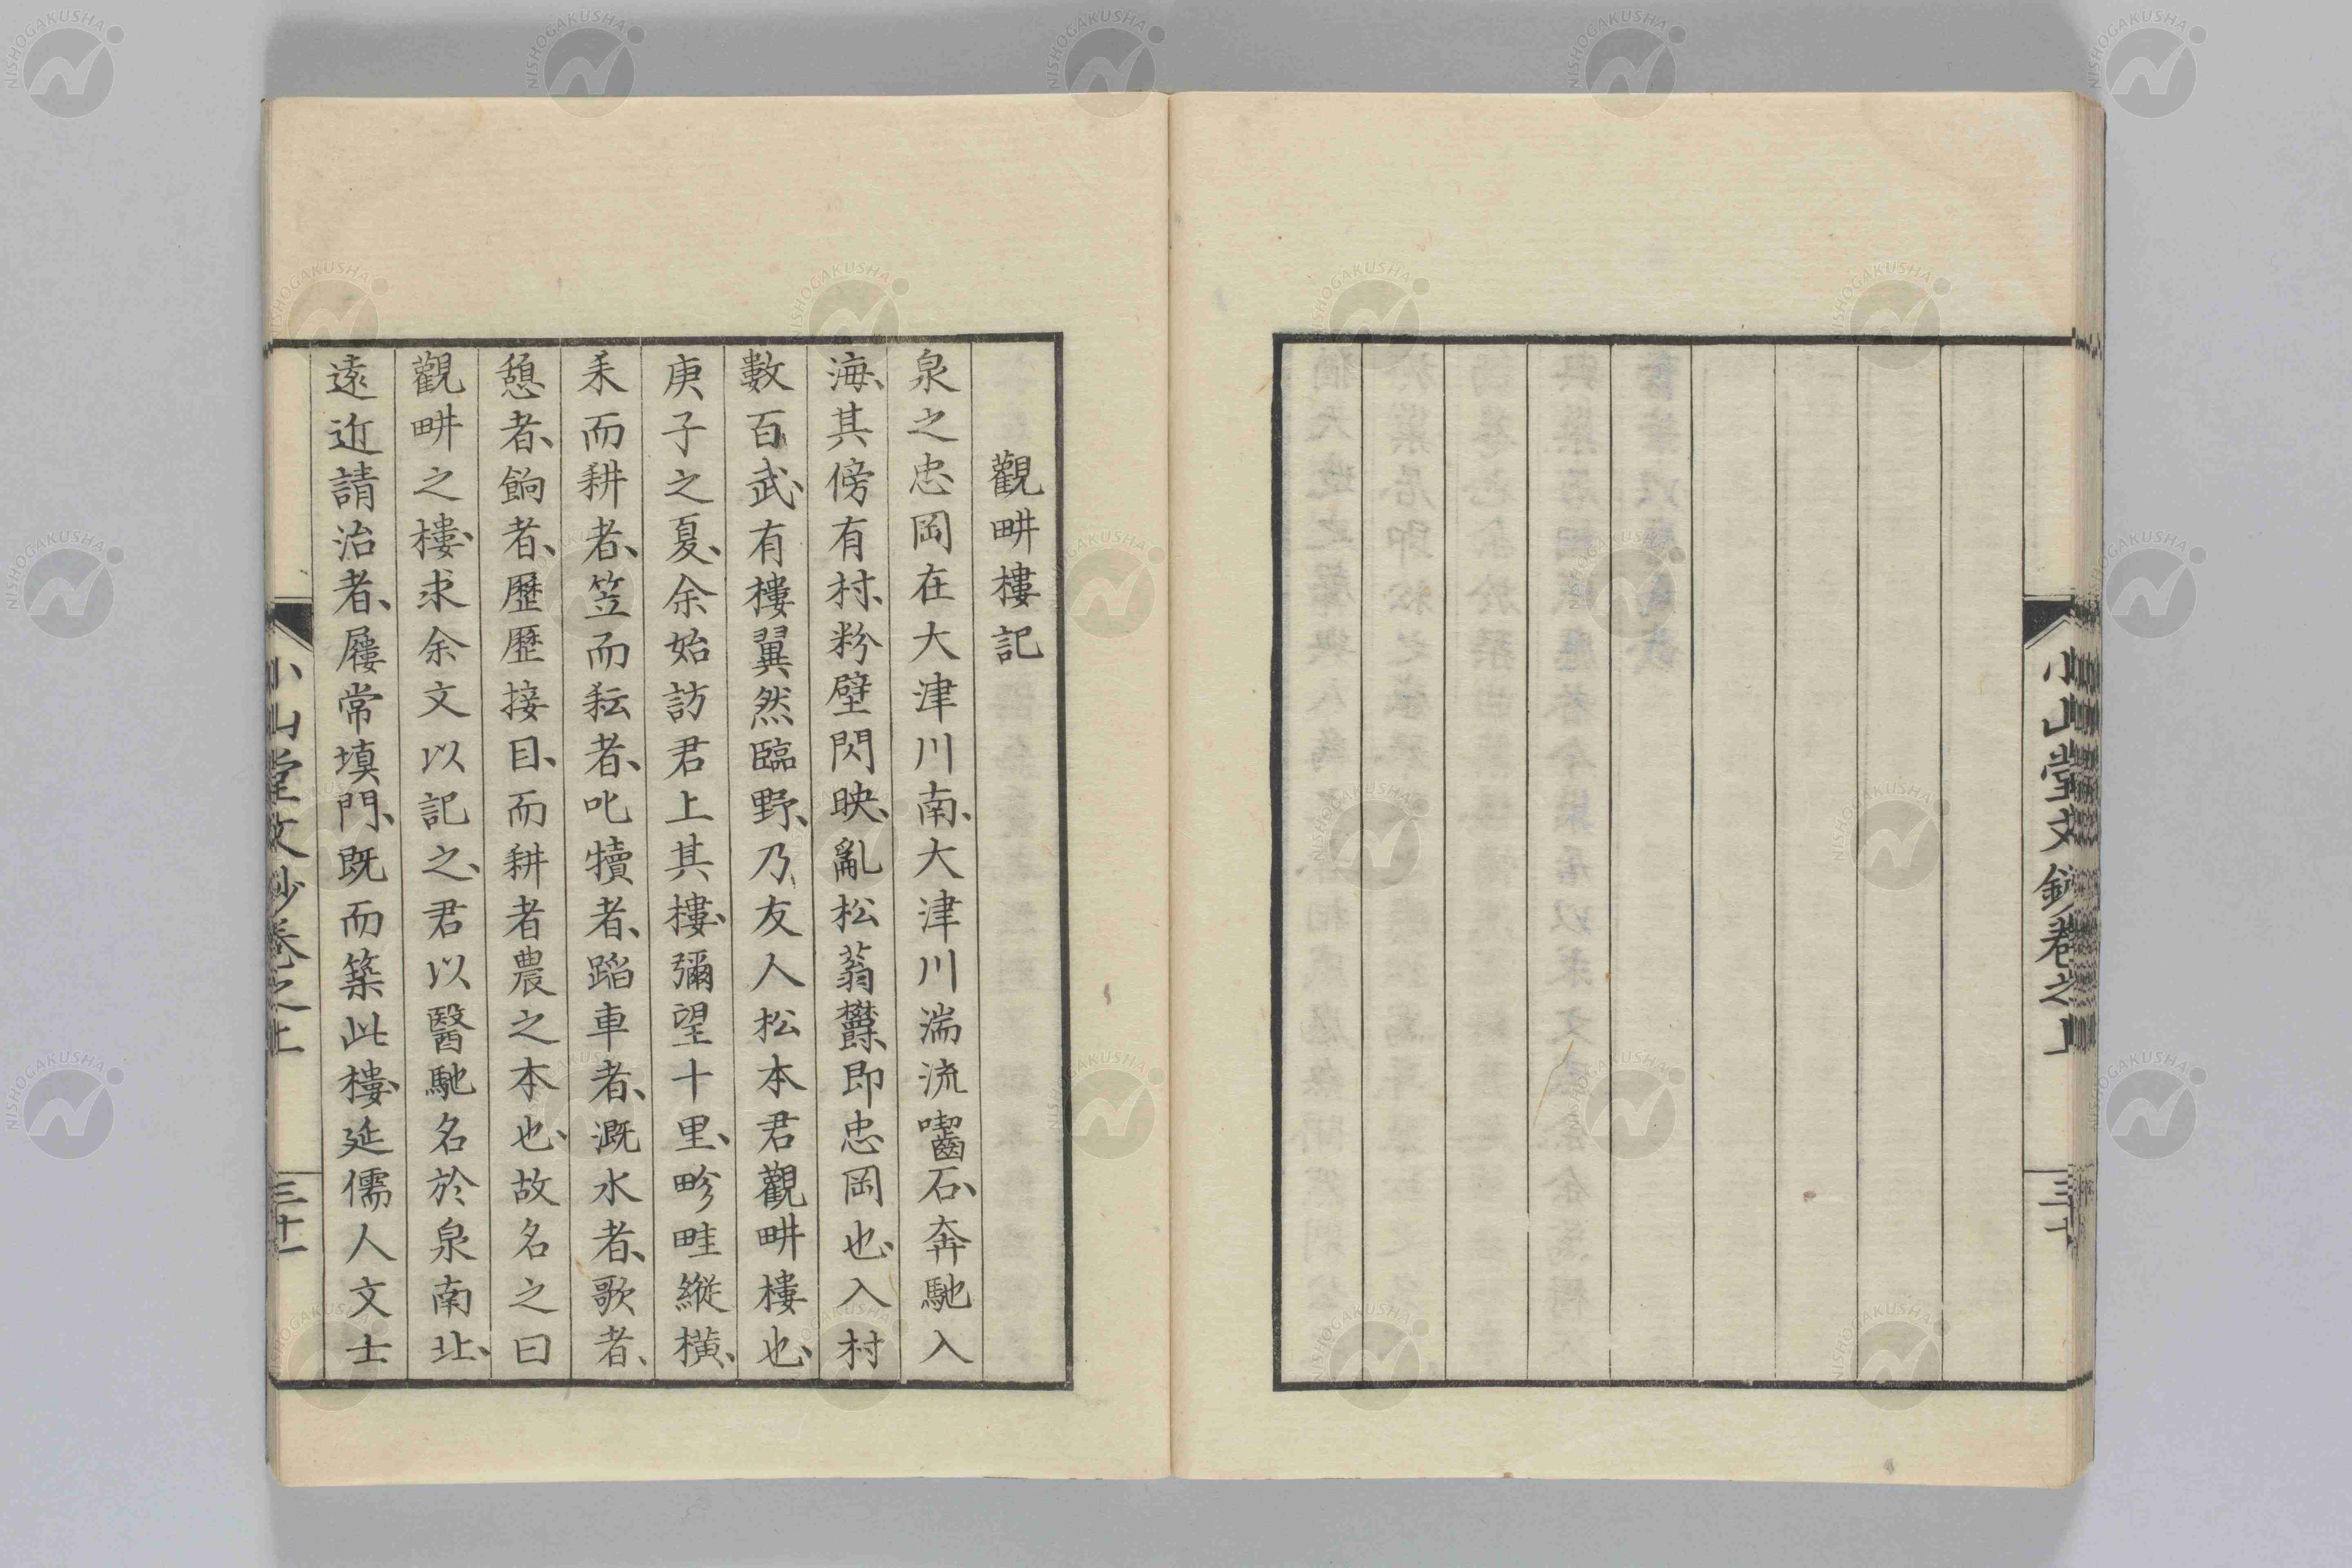 小山堂文鈔卷之上
觀畊樓記
泉之忠岡在大津川南、大津川湍流囓石、奔馳入
海、其傍有村、粉壁閃映、亂松蓊欝、即忠岡也、入村
數百武、有樓翼然臨野、乃友人松本君觀畊樓也、
庚子之夏、余始訪君上其樓、彌望十里、畛畦縱橫、
耒而耕者、笠而耘者、叱犢者、蹈車者、溉水者、歌者、
憩者、餉者、歷歷接目、而耕者農之本也、故名之曰
觀畊之樓、求余文以記之、君以醫馳名於泉南北、
遠近請治者、屨常塡門、既而築此樓、延儒人文士
小山堂文鈔卷之上
NISHOGAKUSHA